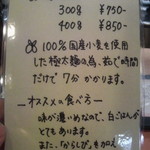 300g ¥750-
400g ¥850-
100%国産小麦を使用
した極太麺の為、茹で時間
だけで7分かかります。
―オススメの食べ方―
味が濃いめなので、白ごはんが
とてもあります。
また、「からしび」を加え